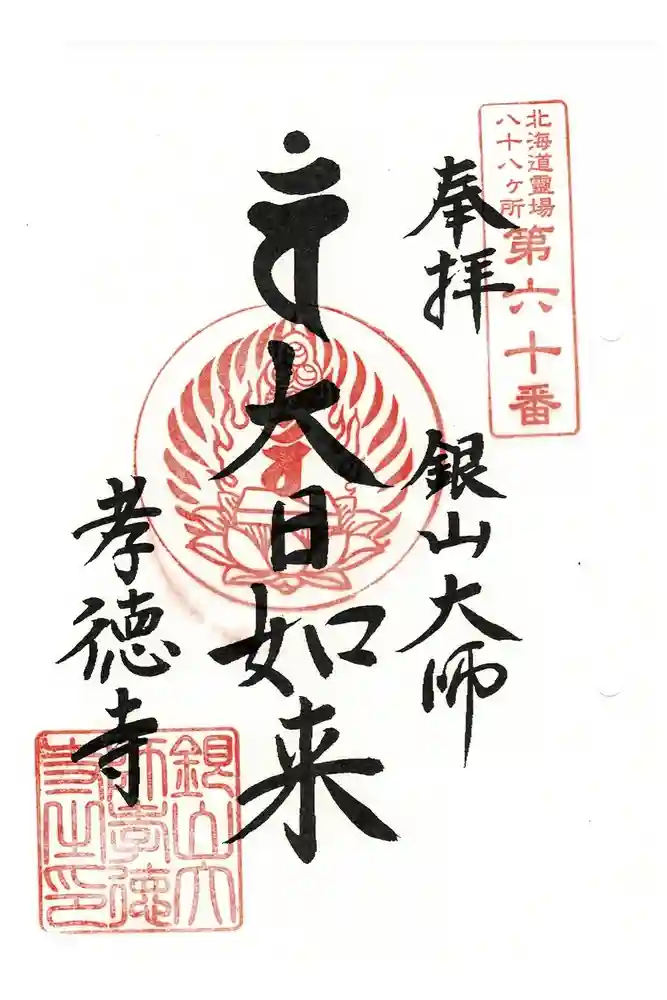 北海道靈場
八十八ヶ所
第六十番
奉拝
銀山大師
大日如来
孝徳寺
銀山大
師孝徳
寺之印